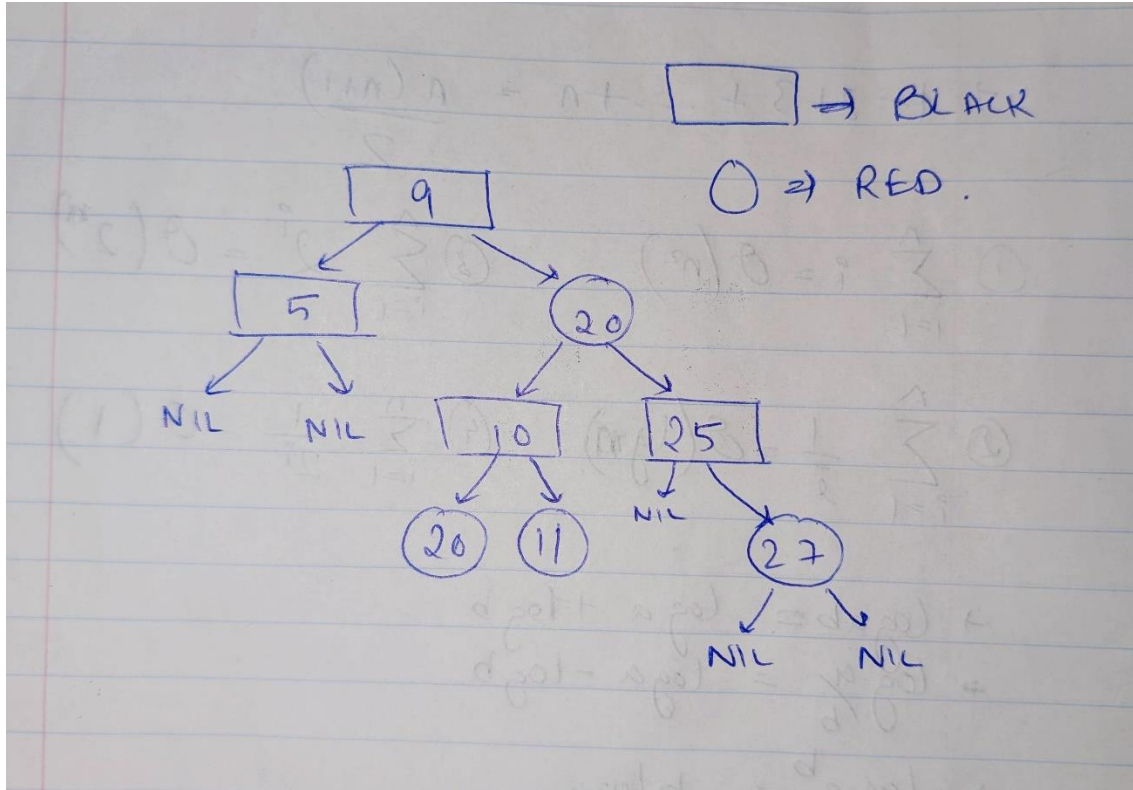 → BLACK
⇒ RED.
9
5 20
NIL NIL 10 25
NIL
20 11 27
NIL NIL